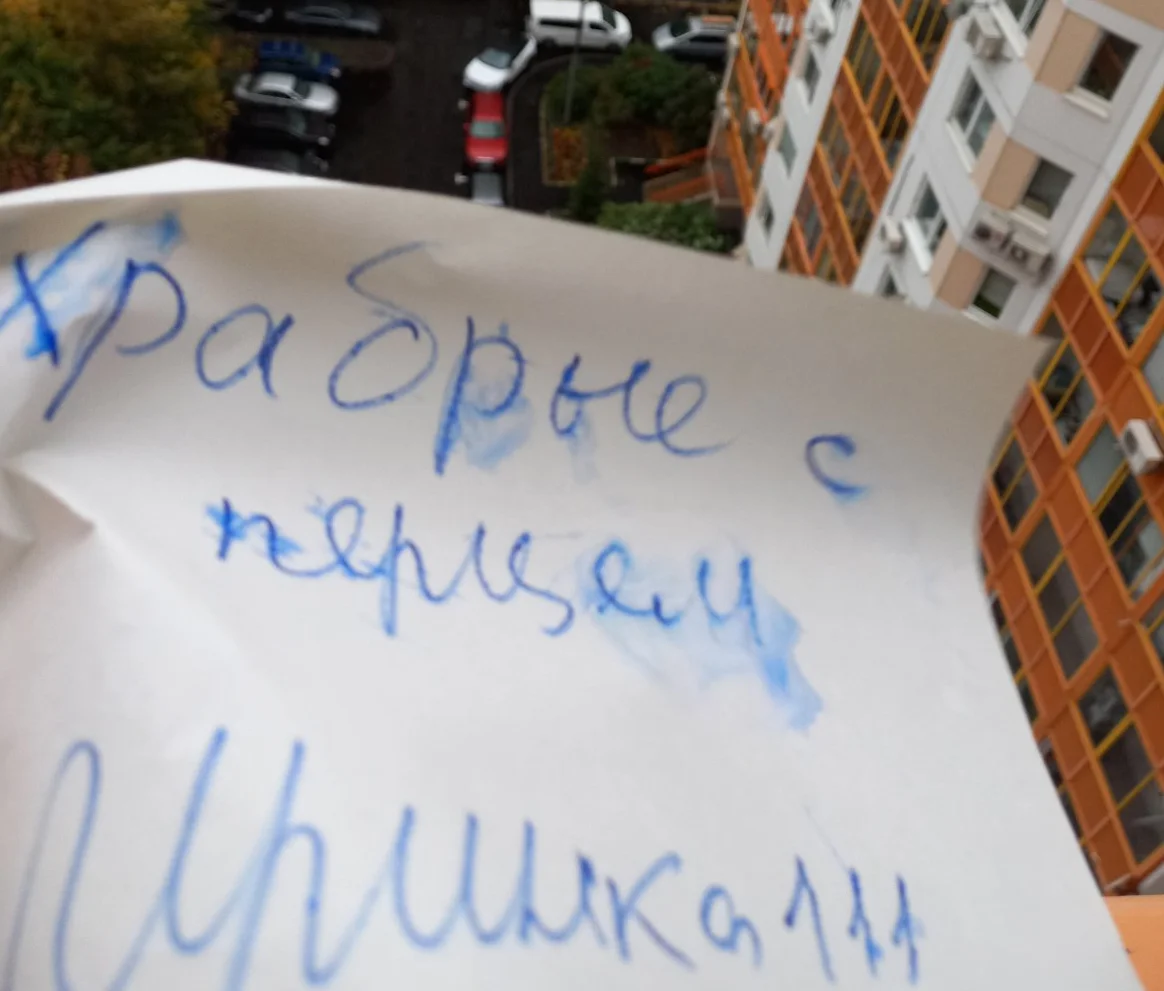 Храбрые с
перцем
Иришка111